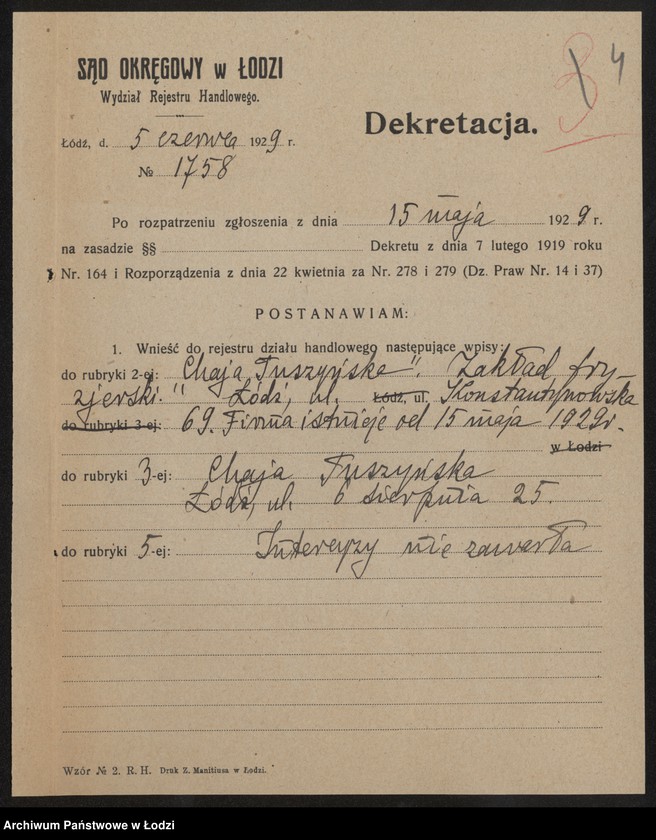 4
SĄD OKRĘGOWY w ŁODZI
Wydział Rejestru Handlowego.
Dekretacja.
Łódź, d. 5 czerwca 1929 r.
№ 1758
Po rozpatrzeniu zgłoszenia z dnia 15 maja 1929 r.
na zasadzie §§ Dekretu z dnia 7 lutego 1919 roku
Nr. 164 i Rozporządzenia z dnia 22 kwietnia za Nr. 278 i 279 (Dz. Praw Nr. 14 i 37)
POSTANAWIAM:
1. Wnieść do rejestru działu handlowego następujące wpisy:
do rubryki 2-ej: „Chaja Tuszyńska". Zakład fry-
zjerski." Łódź, ul. Łódź, ul. Konstantynowska
do rubryki 3-ej: 69. Firma istnieje od 15 maja 1929 r.
w Łodzi
do rubryki 3-ej: Chaja Tuszyńska
Łódź, ul. 6 sierpnia 25.
do rubryki 5-ej: Intercyzy nie zawarła
Wzór № 2. R. H. Druk Z. Manitiusa w Łodzi.
Archiwum Państwowe w Łodzi